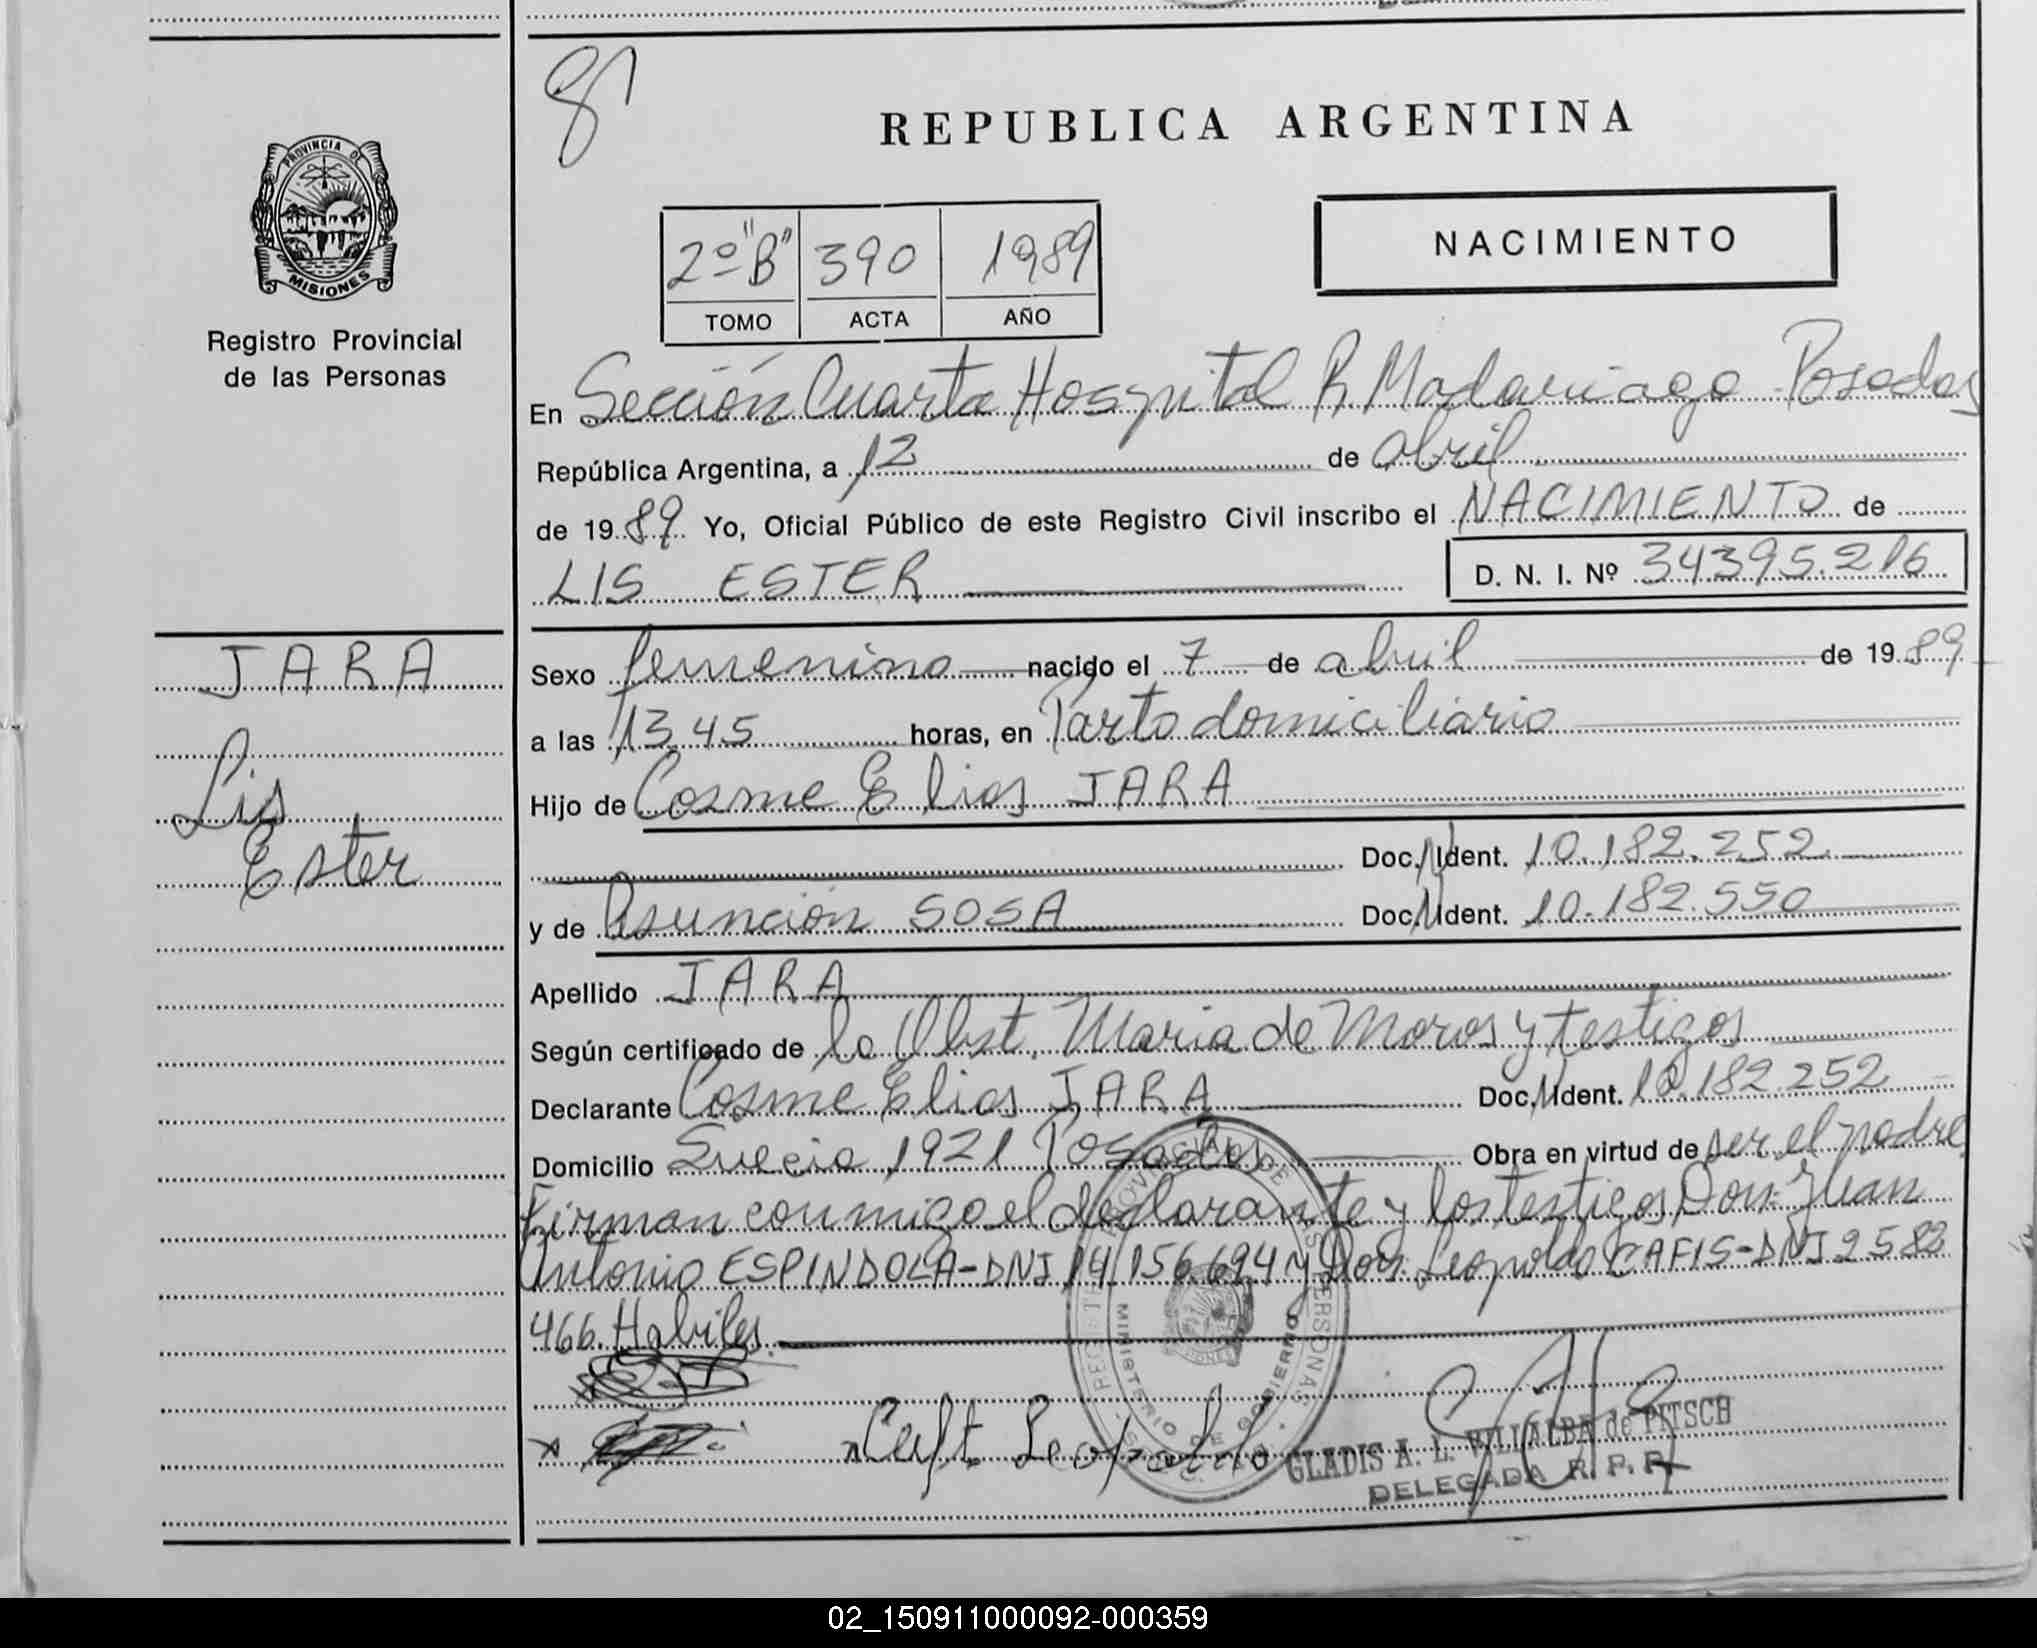 8
REPUBLICA ARGENTINA
PROVINCIA DE
MISIONES
Registro Provincial
de las Personas
2º "B" 390 1989
TOMO ACTA AÑO
NACIMIENTO
En Sección Cuarta Hospital R. Madariaga Posadas
República Argentina, a 12 de abril
de 1989 Yo, Oficial Público de este Registro Civil inscribo el NACIMIENTO de
LIS ESTER D. N. I. Nº 34395.216
JARA
Lis
Ester
Sexo femenino nacido el 7 de abril de 1989
a las 13 45 horas, en Parto domiciliario
Hijo de Cosme Elias JARA
Doc. Ident. 10.182.252
y de Asunción SOSA Doc. Ident. 10.182.550
Apellido JARA
Según certificado de la Obst. Maria de Moros y testigos
Declarante Cosme Elias JARA Doc. Ident. 10.182.252
Domicilio Suecia 1921 Posadas Obra en virtud de ser el padre
Firman conmigo el declarante y los testigos Don: Juan
Antonio ESPINDOLA-DNI 14 156.694 y Don Leopoldo CAFIS-DNI 2582
466. Habiles.
REGISTRO PROVINCIAL DE LAS PERSONAS
MINISTERIO DE GOBIERNO
Leopoldo
GLADIS A. L. VILLALBA de PITSCH
DELEGADA R. P. P.
02_150911000092-000359